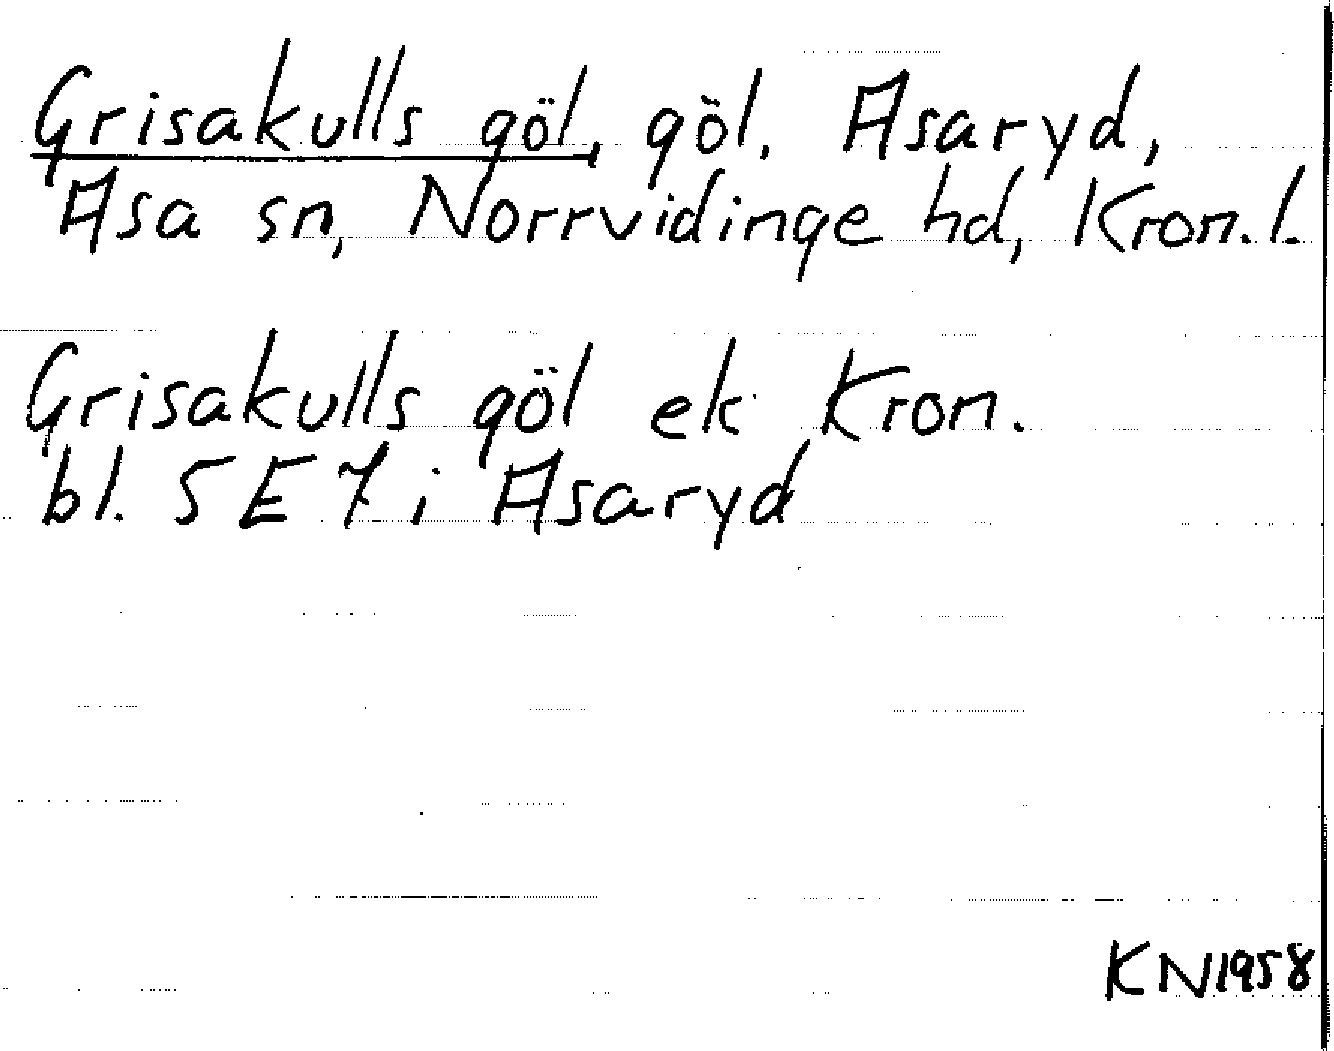 Grisakulls göl, göl, Asaryd,
Asa sn, Norrvidinge hd, Kron. l.
Grisakulls göl ek Kron.
bl. 5 E 7 i Asaryd
KN 1958